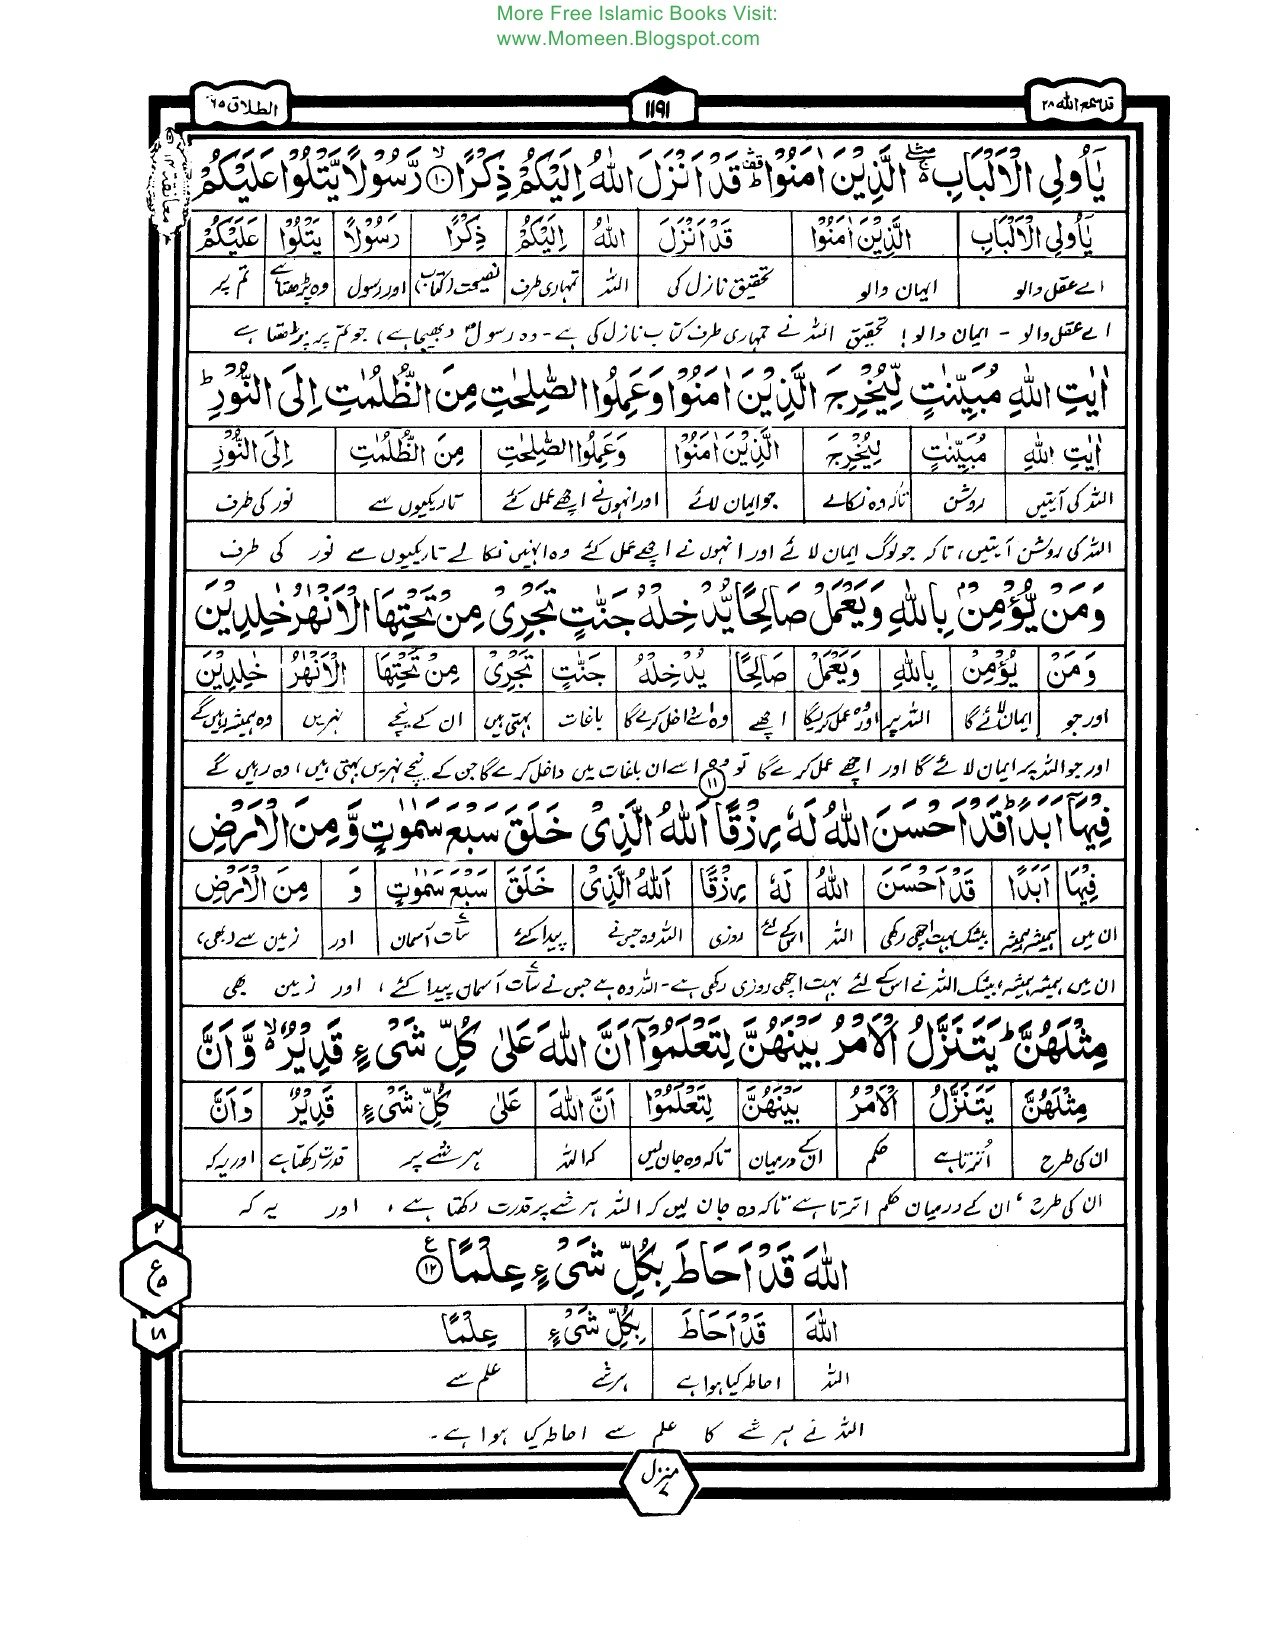 More Free Islamic Books Visit:
www.Momeen.Blogspot.com
قد سمع الله ٢٨
١١٩١
الطلاق ٦٥
يٰٓاُولِي الْاَلْبَابِ ۛۚ الَّذِيْنَ اٰمَنُوْا ۛؕ قَدْ اَنْزَلَ اللّٰهُ اِلَيْكُمْ ذِكْرًا ۙ۝۱۰ رَّسُوْلًا يَّتْلُوْا عَلَيْكُمْ
معانقة ١٢
يٰٓاُولِي الْاَلْبَابِ الَّذِيْنَ اٰمَنُوْا قَدْ اَنْزَلَ اللّٰهُ اِلَيْكُمْ ذِكْرًا رَسُوْلًا يَتْلُوْا عَلَيْكُمْ
اے عقل والو ایمان والو تحقیق نازل کی اللہ تمہاری طرف نصیحت (کتاب) اور رسول وہ پڑھتا ہے تم پر
اے عقل والو - ایمان والو! تحقیق اللہ نے تمہاری طرف کتاب نازل کی ہے - وہ رسول (بھیجا ہے) جو تم پر پڑھتا ہے
اٰيٰتِ اللّٰهِ مُبَيِّنٰتٍ لِّيُخْرِجَ الَّذِيْنَ اٰمَنُوْا وَعَمِلُوا الصّٰلِحٰتِ مِنَ الظُّلُمٰتِ اِلَى النُّوْرِ ؕ
اٰيٰتِ اللّٰهِ مُبَيِّنٰتٍ لِيُخْرِجَ الَّذِيْنَ اٰمَنُوْا وَعَمِلُوا الصّٰلِحٰتِ مِنَ الظُّلُمٰتِ اِلَى النُّوْرِ
اللہ کی آیتیں روشن تاکہ وہ نکالے جو ایمان لائے اور انہوں نے اچھے عمل کئے تاریکیوں سے نور کی طرف
اللہ کی روشن آیتیں، تاکہ جو لوگ ایمان لائے اور انہوں نے اچھے عمل کئے وہ انہیں نکالے تاریکیوں سے نور کی طرف
وَمَنْ يُّؤْمِنْۢ بِاللّٰهِ وَيَعْمَلْ صَالِحًا يُّدْخِلْهُ جَنّٰتٍ تَجْرِيْ مِنْ تَحْتِهَا الْاَنْهٰرُ خٰلِدِيْنَ
وَمَنْ يُؤْمِنْ بِاللّٰهِ وَيَعْمَلْ صَالِحًا يُدْخِلْهُ جَنّٰتٍ تَجْرِيْ مِنْ تَحْتِهَا الْاَنْهٰرُ خٰلِدِيْنَ
اور جو ایمان لائے گا اللہ پر اور وہ عمل کریگا اچھے وہ اسے داخل کرے گا باغات بہتی ہیں ان کے نیچے نہریں وہ ہمیشہ رہیں گے
اور جو اللہ پر ایمان لائے گا اور اچھے عمل کرے گا تو وہ اسے ان باغات میں داخل کرے گا جن کے نیچے نہریں بہتی ہیں، وہ رہیں گے
فِيْهَآ اَبَدًا ؕ قَدْ اَحْسَنَ اللّٰهُ لَهٗ رِزْقًا ۝۱۱ اَللّٰهُ الَّذِيْ خَلَقَ سَبْعَ سَمٰوٰتٍ وَّمِنَ الْاَرْضِ
فِيْهَا اَبَدًا قَدْ اَحْسَنَ اللّٰهُ لَهٗ رِزْقًا اَللّٰهُ الَّذِيْ خَلَقَ سَبْعَ سَمٰوٰتٍ وَ مِنَ الْاَرْضِ
ان میں ہمیشہ ہمیشہ بیشک بہت اچھی رکھی اللہ اس کے لئے روزی اللہ وہ جس نے پیدا کئے سات آسمان اور زمین سے (بھی)
ان میں ہمیشہ ہمیشہ، بیشک اللہ نے اس کے لئے بہت اچھی روزی رکھی ہے - اللہ وہ ہے جس نے سات آسمان پیدا کئے، اور زمین بھی
مِثْلَهُنَّ ؕ يَتَنَزَّلُ الْاَمْرُ بَيْنَهُنَّ لِتَعْلَمُوْٓا اَنَّ اللّٰهَ عَلٰى كُلِّ شَيْءٍ قَدِيْرٌ ۙ وَّاَنَّ
مِثْلَهُنَّ يَتَنَزَّلُ الْاَمْرُ بَيْنَهُنَّ لِتَعْلَمُوْٓا اَنَّ اللّٰهَ عَلٰى كُلِّ شَيْءٍ قَدِيْرٌ وَاَنَّ
ان کی طرح اُترتا ہے حکم ان کے درمیان تاکہ وہ جان لیں کہ اللہ ہر شے پر قدرت رکھتا ہے اور یہ کہ
ان کی طرح، ان کے درمیان حکم اترتا ہے تاکہ وہ جان لیں کہ اللہ ہر شے پر قدرت رکھتا ہے، اور یہ کہ
اللّٰهَ قَدْ اَحَاطَ بِكُلِّ شَيْءٍ عِلْمًا ۝۱۲ ع
٢
ع ٥
١٨
اللّٰهَ قَدْ اَحَاطَ بِكُلِّ شَيْءٍ عِلْمًا
اللہ احاطہ کیا ہوا ہے ہر شے علم سے
اللہ نے ہر شے کا علم سے احاطہ کیا ہوا ہے -
منزل ٧